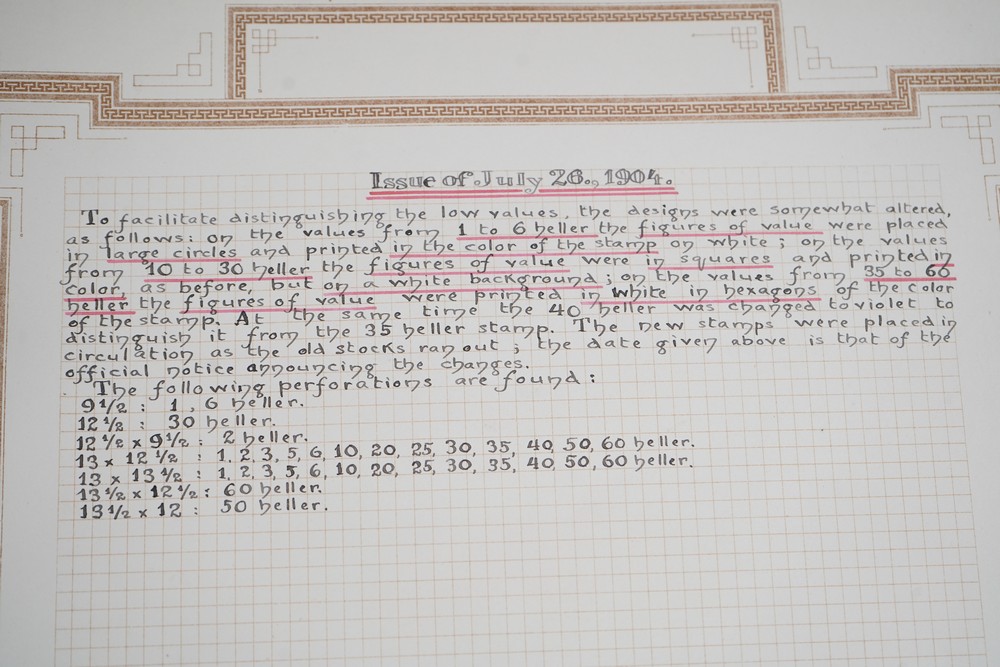 Issue of July 26., 1904.
To facilitate distinguishing the low values, the designs were somewhat altered,
as follows: on the values from 1 to 6 heller the figures of value were placed
in large circles and printed in the color of the stamp on white; on the values
from 10 to 30 heller the figures of value were in squares and printed in
color, as before, but on a white background; on the values from 35 to 60
heller the figures of value were printed in white in hexagons of the color
of the stamp. At the same time the 40 heller was changed to violet to
distinguish it from the 35 heller stamp. The new stamps were placed in
circulation as the old stocks ran out; the date given above is that of the
official notice announcing the changes.
The following perforations are found:
9 1/2 : 1, 6 heller.
12 1/2 : 30 heller.
12 1/2 x 9 1/2 : 2 heller.
13 x 12 1/2 : 1, 2, 3, 5, 6, 10, 20, 25, 30, 35, 40, 50, 60 heller.
13 x 13 1/2 : 1, 2, 3, 5, 6, 10, 20, 25, 30, 35, 40, 50, 60 heller.
13 1/2 x 12 1/2 : 60 heller.
13 1/2 x 12 : 50 heller.